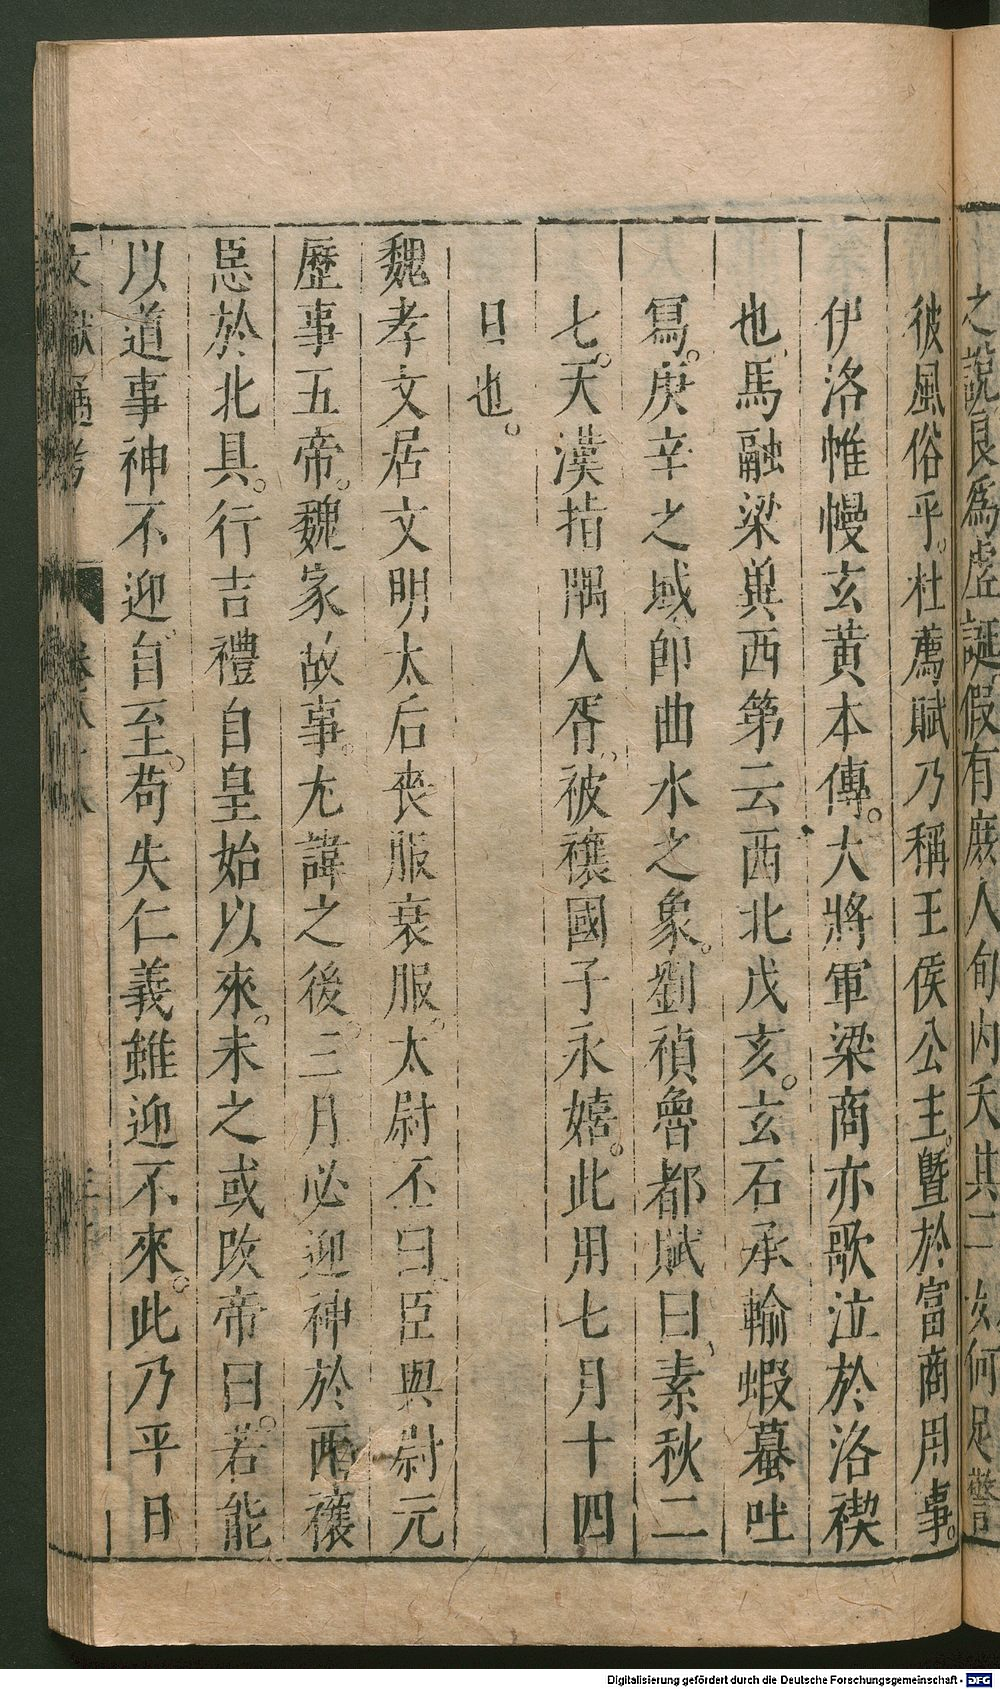 之說良為虛誕假有庶人旬內夭其二女何足警
彼風俗乎杜薦賦乃稱王侯公主暨於富商用事。
伊洛帷幔玄黃本傳。大將軍梁商亦歌泣於洛禊
也馬融梁兾西第云西北戊亥。玄石承輸蝦蟇吐
寫。庚辛之域即曲水之象。劉禎魯都賦曰、素秋二
七。天漢指隅人胥被禳國子永嬉。此用七月十四
日也。
魏孝文居文明太后喪服衰服。太尉丕曰臣與尉元
歷事五帝。魏家故事。尤諱之後。三月必迎神於西禳
惡於北具。行吉禮自皇始以來。未之或改帝曰。若能
以道事神不迎自至。苟失仁義雖迎不來。此乃平日
文獻通考
Digitalisierung gefördert durch die Deutsche Forschungsgemeinschaft - DFG